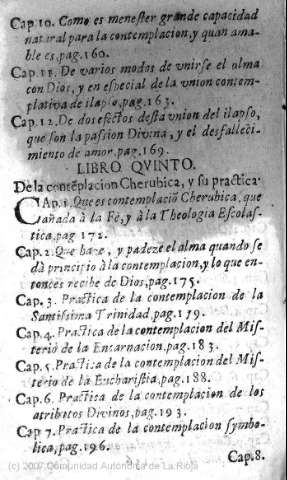 Cap.10. Como es menester grande capacidad
natural para la contemplacion, y quan ama-
ble es, pag.160.
Cap.11. De varios modos de vnirse el alma
con Dios, y en especial de la vnion contem-
plativa de ilapso, pag.163.
Cap.12. De dos efectos desta vnion del ilapso,
que son la passion Divina, y el desfalleci-
miento de amor, pag.169.
LIBRO QVINTO.
De la contẽplacion Cherubica, y su practica.
CAp.1. Que es contemplació Cherubica, que
añada à la Fè, y à la Theologia Escolas-
tica, pag 172.
Cap.2. Que haze, y padeze el alma quando se
dà principio à la contemplacion, y lo que en-
tonces recibe de Dios, pag.175.
Cap. 3. Practica de la contemplacion de la
Santissima Trinidad, pag.179.
Cap.4. Practica de la contemplacion del Mis-
terio de la Encarnacion, pag.183.
Cap.5. Practica de la contemplacion del Mis-
terio de la Eucharistia, pag.188.
Cap.6. Practica de la contemplacion de los
atributos Divinos, pag.193.
Cap 7. Practica de la contemplacion symbo-
lica, pag.196.
Cap.8.
(c) 2007 Comunidad Autónoma de La Rioja